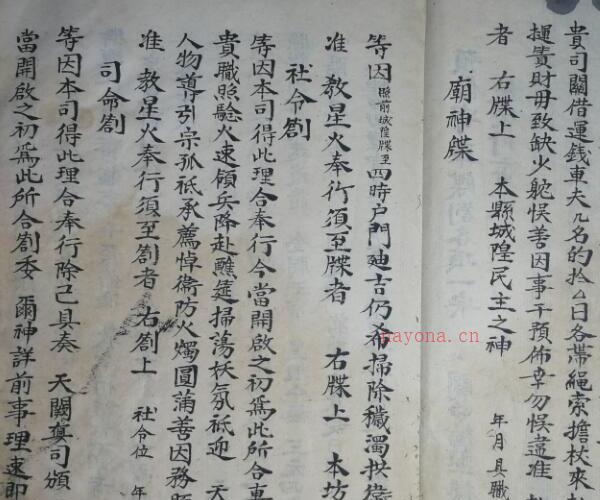 貴司關借運錢車夫几名的拾厶日各帶繩索擔杖來
運賚財毋致缺少躭悞善因事干預佈幸勿悞盡准
者 右牒上 本縣城隍民主之神
年月具職
廟神牒
等因照前城隍牒至四時户門廸吉仍希掃除穢濁拱衛
准 教星火奉行須至牒者 右牒上 本坊
社令劄
等因本司得此理合奉行今當開啟之初爲此所合專
貴職照驗火速領兵降赴醮筵掃蕩妖氛祇迎 天
人物導引宗孤祇承薦悼衛防火燭圓滿善因務
准 教星火奉行須至劄者 右劄上 社令位 年
司命劄
等因本司得此理合奉行除已具奏 天闕真司頒
當開啟之初爲此所合劄委 爾神詳前事理速即
nayona.cn